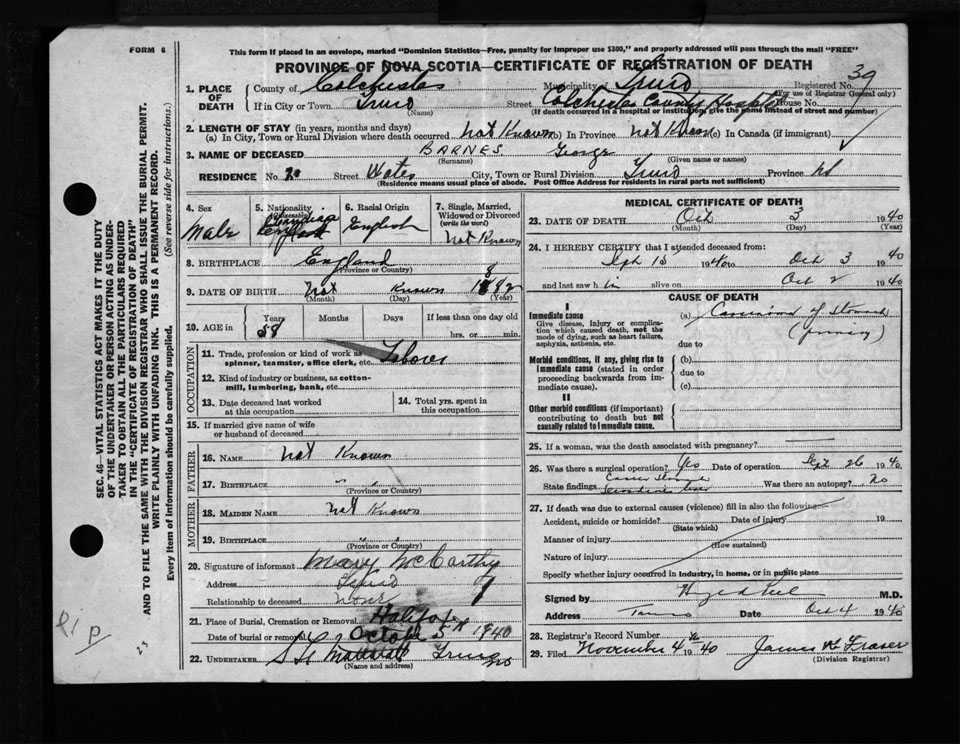 FORM 6
This form if placed in an envelope, marked "Dominion Statistics—Free, penalty for improper use $300," and properly addressed will pass through the mail "FREE"
PROVINCE OF NOVA SCOTIA—CERTIFICATE OF REGISTRATION OF DEATH
39
1. PLACE OF DEATH
County of Colchester Municipality of Truro Registered No.
(For use of Registrar General only)
If in City or Town Truro Street Colchester County Hospital House No.
(If death occurred in a hospital or institution, give the name instead of street and number)
2. LENGTH OF STAY (in years, months and days)
(a) In City, Town or Rural Division where death occurred Not Known (b) In Province Not Known (c) In Canada (if immigrant)
3. NAME OF DECEASED BARNES. George
(Surname) (Given name or names)
RESIDENCE No. 20 Street Water City, Town or Rural Division Truro Province NS
(Residence means usual place of abode. Post Office Address for residents in rural parts not sufficient)
4. Sex
Male
5. Nationality
(Citizenship)
6. Racial Origin
English
7. Single, Married, Widowed or Divorced
(write the word)
Not Known
8. BIRTHPLACE England
(Province or Country)
9. DATE OF BIRTH Not Known 1882
(Month) (Day) (Year)
10. AGE in
Years Months Days If less than one day old
58 hrs. or min.
OCCUPATION
11. Trade, profession or kind of work as spinner, teamster, office clerk, etc. Laborer
12. Kind of industry or business, as cotton-mill, lumbering, bank, etc.
13. Date deceased last worked at this occupation
14. Total yrs. spent in this occupation
15. If married give name of wife or husband of deceased
FATHER
16. NAME Not Known
17. BIRTHPLACE " "
(Province or Country)
MOTHER
18. MAIDEN NAME Not Known
19. BIRTHPLACE " "
(Province or Country)
20. Signature of informant Mary McCarthy
Address Truro
Relationship to deceased None
21. Place of Burial, Cremation or Removal Halifax
Date of burial or removal October 5th 1940
22. UNDERTAKER Truro NS
(Name and address)
MEDICAL CERTIFICATE OF DEATH
23. DATE OF DEATH Oct 3 1940
(Month) (Day) (Year)
24. I HEREBY CERTIFY that I attended deceased from:
Sept 15 1940 to Oct 3 1940
and last saw h im alive on Oct 2 1940
CAUSE OF DEATH
I
Immediate cause
Give disease, injury or complication which caused death, not the mode of dying, such as heart failure, asphyxia, asthenia, etc.
(a) Carcinoma of Stomach
(primary)
due to
Morbid conditions, if any, giving rise to immediate cause (stated in order proceeding backwards from immediate cause).
(b)
due to
(c)
II
Other morbid conditions (if important) contributing to death but not causally related to immediate cause.
25. If a woman, was the death associated with pregnancy?
26. Was there a surgical operation? Yes Date of operation Sept 26 1940
State findings Was there an autopsy? No
27. If death was due to external causes (violence) fill in also the following:—
Accident, suicide or homicide? Date of injury 19
(State which)
Manner of injury
(How sustained)
Nature of injury
Specify whether injury occurred in industry, in home, or in public place
Signed by M.D.
Address Truro Date Oct 4 1940
28. Registrar's Record Number
29. Filed November 4 1940 James W Fraser
(Division Registrar)
SEC. 46—VITAL STATISTICS ACT MAKES IT THE DUTY
OF THE UNDERTAKER OR PERSON ACTING AS UNDER-
TAKER TO OBTAIN ALL THE PARTICULARS REQUIRED
IN THE "CERTIFICATE OF REGISTRATION OF DEATH"
AND TO FILE THE SAME WITH THE DIVISION REGISTRAR WHO SHALL ISSUE THE BURIAL PERMIT.
WRITE PLAINLY WITH UNFADING INK. THIS IS A PERMANENT RECORD.
Every item of Information should be carefully supplied. (See reverse side for instructions.)
23